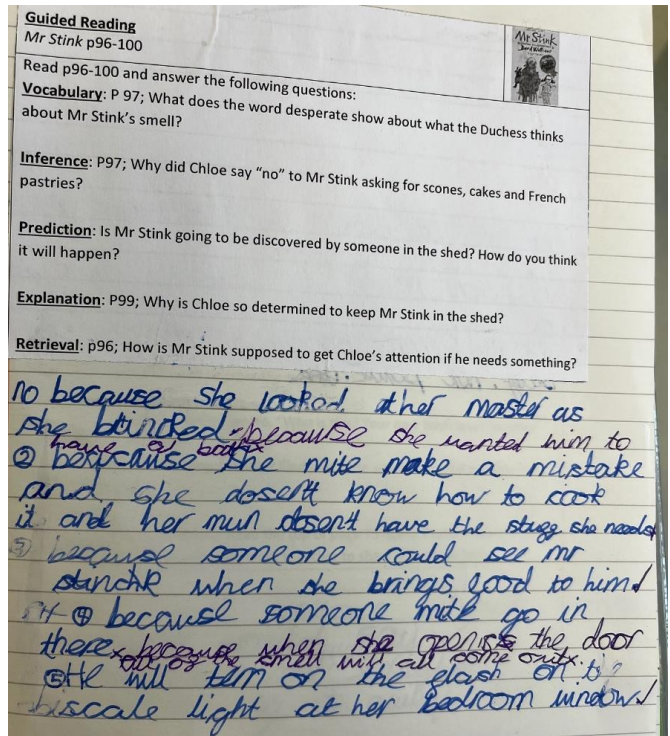 Guided Reading
Mr Stink p96-100
Mr Stink
Read p96-100 and answer the following questions:
Vocabulary: P 97; What does the word desperate show about what the Duchess thinks
about Mr Stink's smell?
Inference: P97; Why did Chloe say "no" to Mr Stink asking for scones, cakes and French
pastries?
Prediction: Is Mr Stink going to be discovered by someone in the shed? How do you think
it will happen?
Explanation: P99; Why is Chloe so determined to keep Mr Stink in the shed?
Retrieval: p96; How is Mr Stink supposed to get Chloe's attention if he needs something?
no because she looked at her master as
she blinded because she wanted him to
have a bath
② because she mite make a mistake
and she dosen't know how to cook
it and her mun dosen't have the stugg she needs
③ because someone could see mr
when she brings good to him
④ because someone mite go in
there because when she opens the door
all of the smell will all come out
⑤ He will tern on the flash on
light at her bedroom window